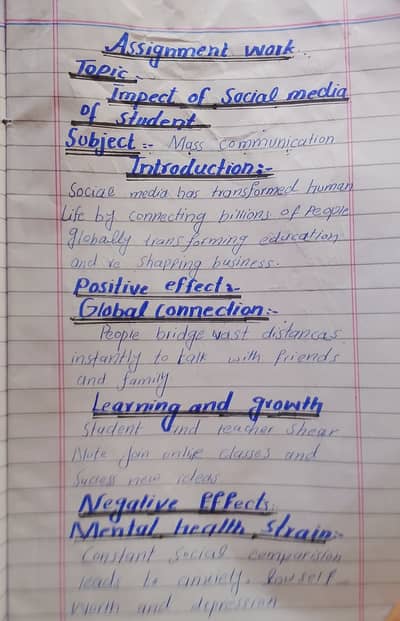 Assignment work
Topic:-
Impact of Social media
of Student
Subject:- Mass communication
Introduction:-
Social media has transformed human
life by connecting billions of People
globally transforming education
and re shapping business.
Positive effect:-
Global connection:-
People bridge wast distancas
instantly to talk with friends
and family
Learning and growth
Student and teacher Shear
Note Join online classes and
new ideas
Negative Effects
Mental health strain:-
Constant Social comparision
leads to anxiety,
worth and depression